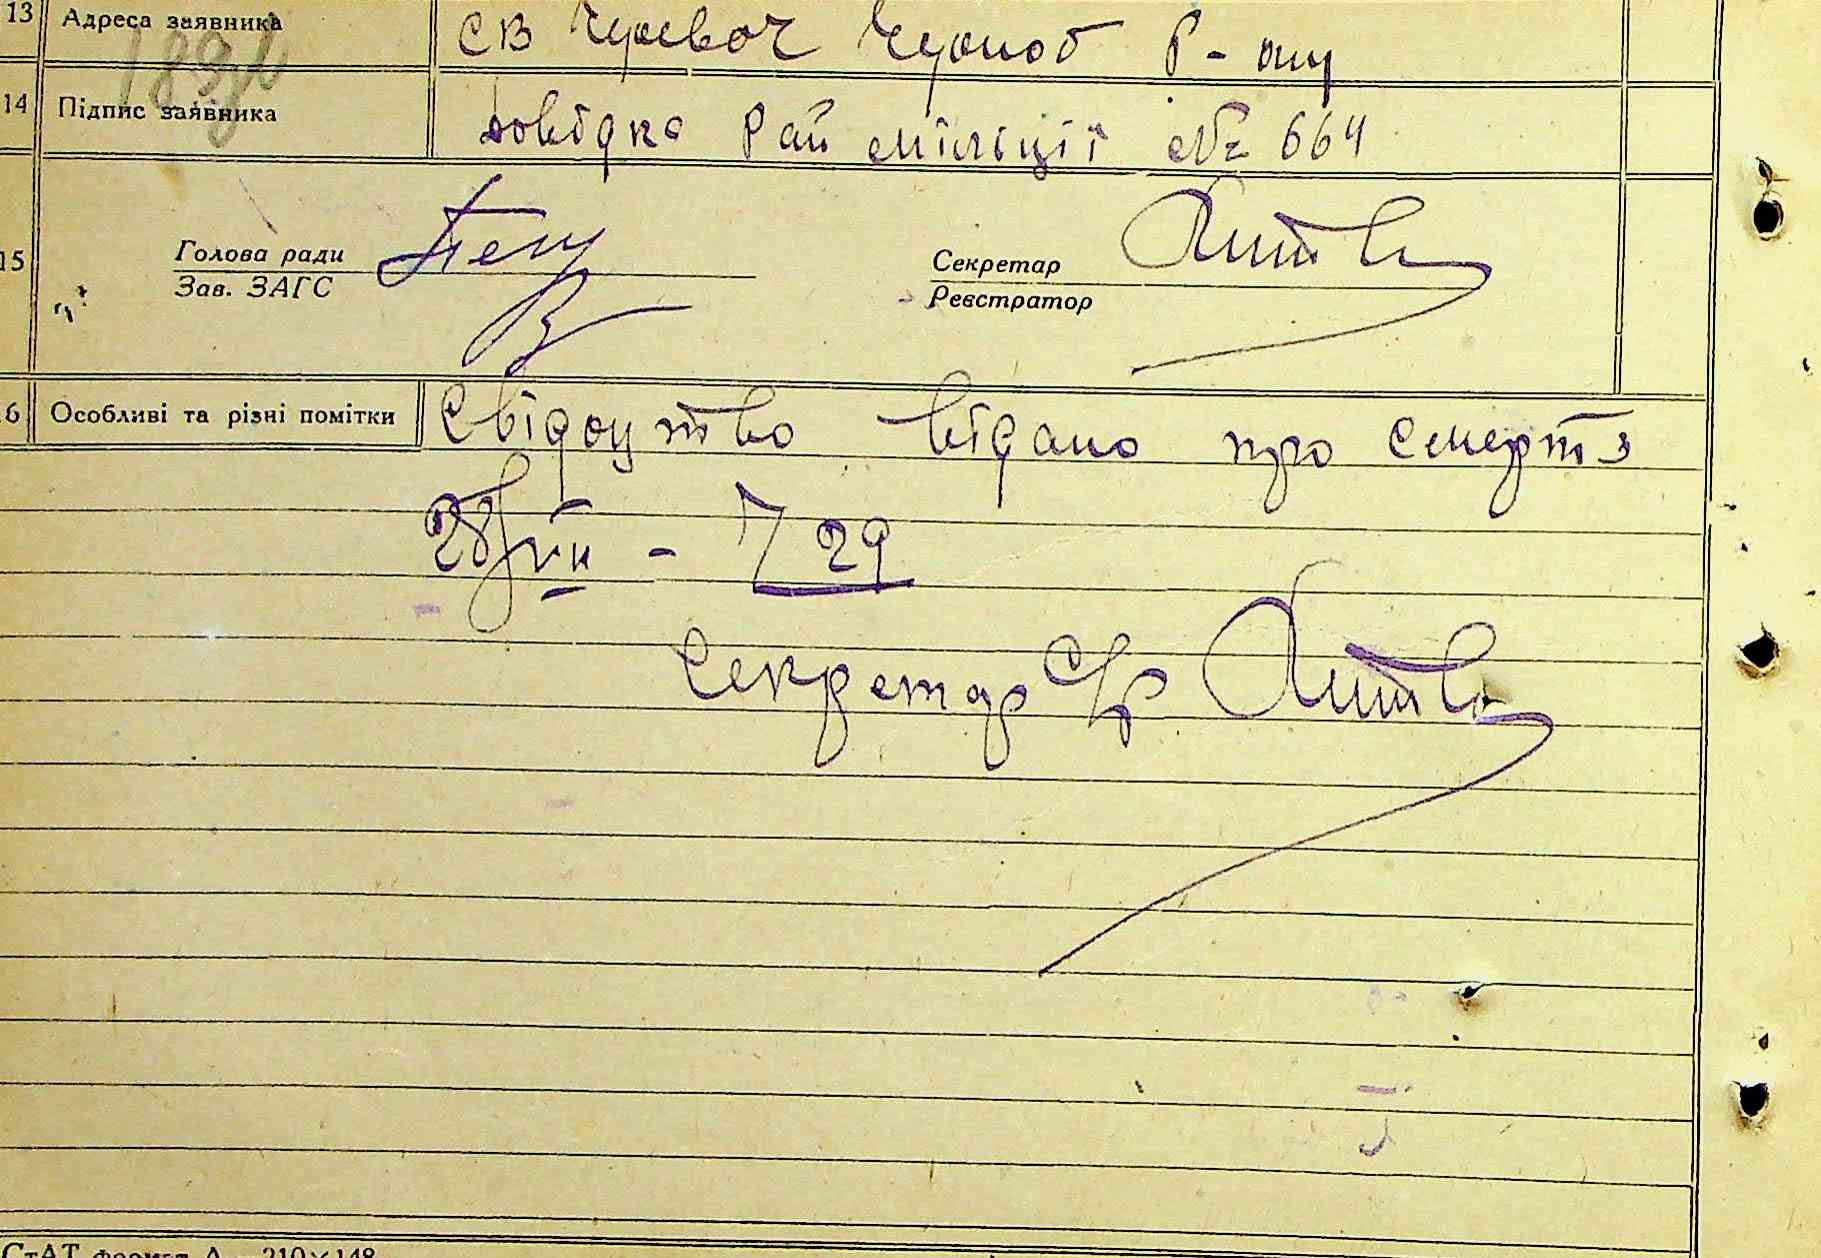 13 Адреса заявника св Черевач Чорноб р-ну
14 Підпис заявника довідка Рай міліції № 664
15 Голова ради
Зав. ЗАГС
Секретар
Реєстратор
6 Особливі та різні помітки Свідоцтво відано про смерть
28/VII - 29
Секретар С/р
СтАТ формат А 210×148